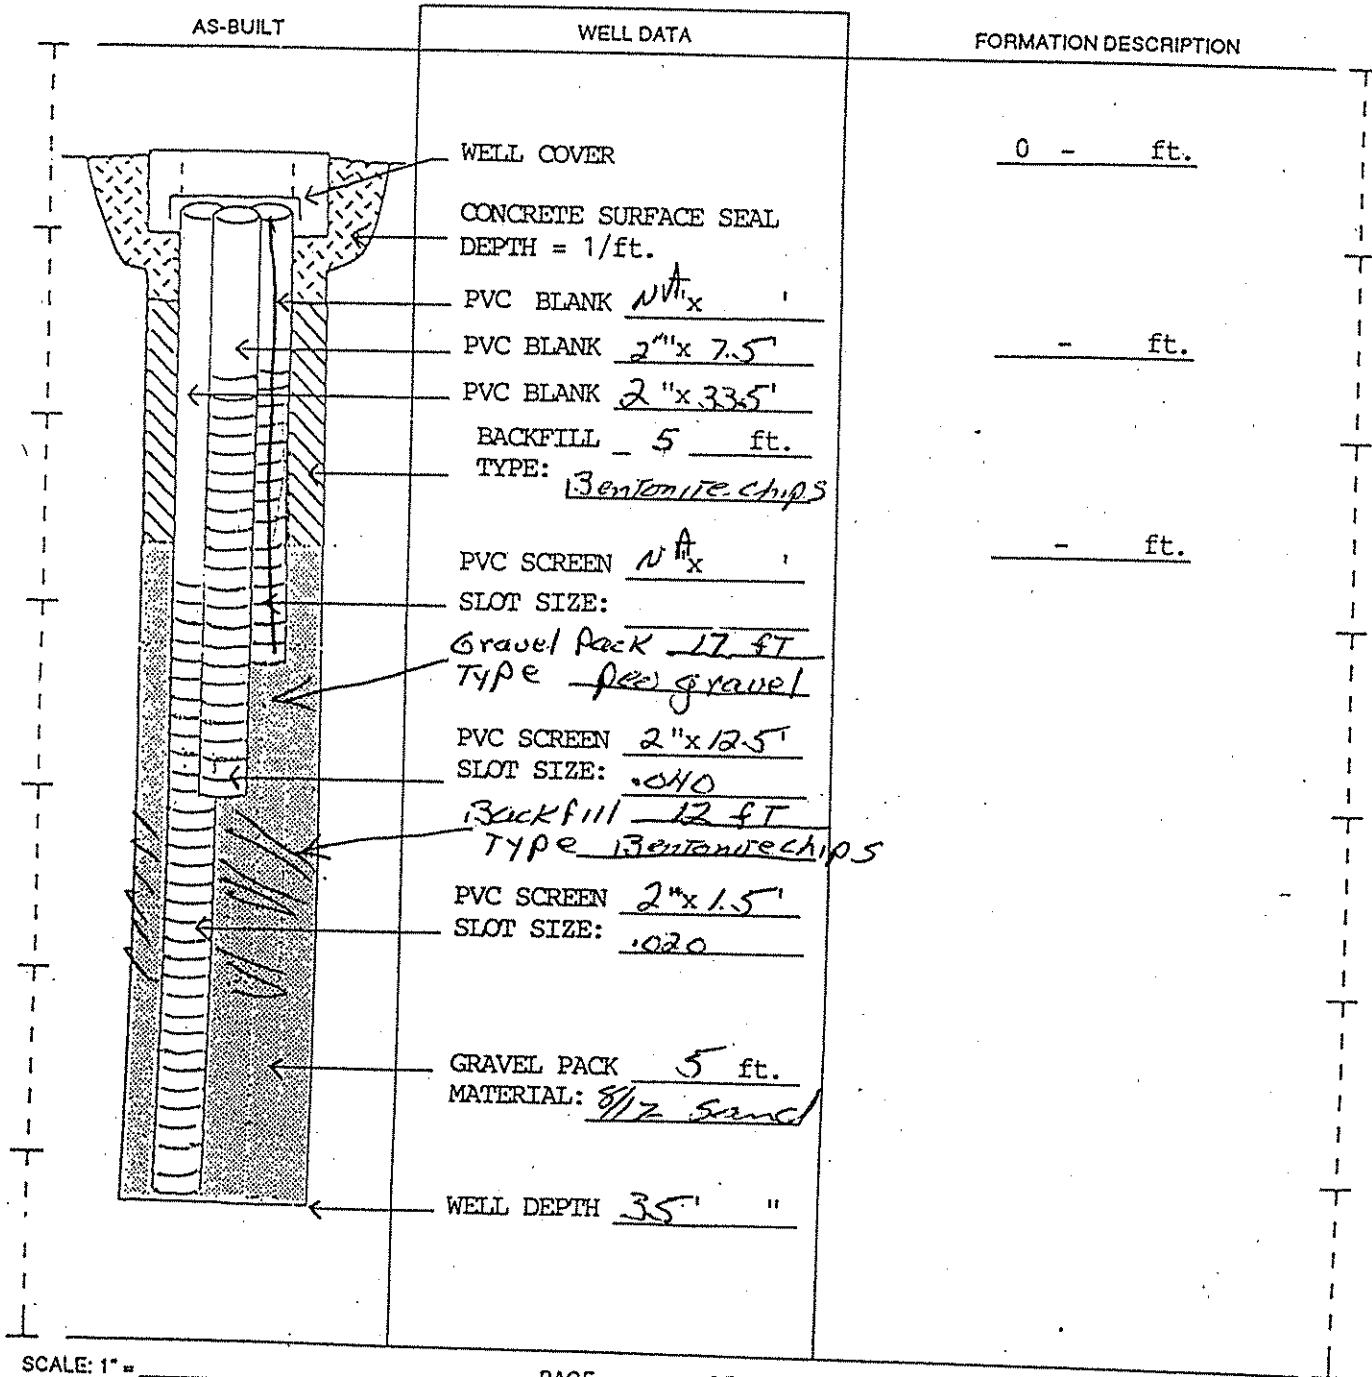 AS-BUILT
WELL DATA
FORMATION DESCRIPTION
WELL COVER
0 - ft.
CONCRETE SURFACE SEAL
DEPTH = 1/ft.
PVC BLANK NA "x '
PVC BLANK 2""x 7.5'
- ft.
PVC BLANK 2 "x 33.5'
BACKFILL 5 ft.
TYPE: Bentonite chips
PVC SCREEN NA "x '
- ft.
SLOT SIZE:
Gravel Pack 17 fT
Type pea gravel
PVC SCREEN 2"x 12.5'
SLOT SIZE: .040
Backfill 12 fT
Type Bentonite chips
PVC SCREEN 2"x 1.5'
SLOT SIZE: .020
GRAVEL PACK 5 ft.
MATERIAL: 8/12 Sand
WELL DEPTH 35' "
SCALE: 1" =
PAGE